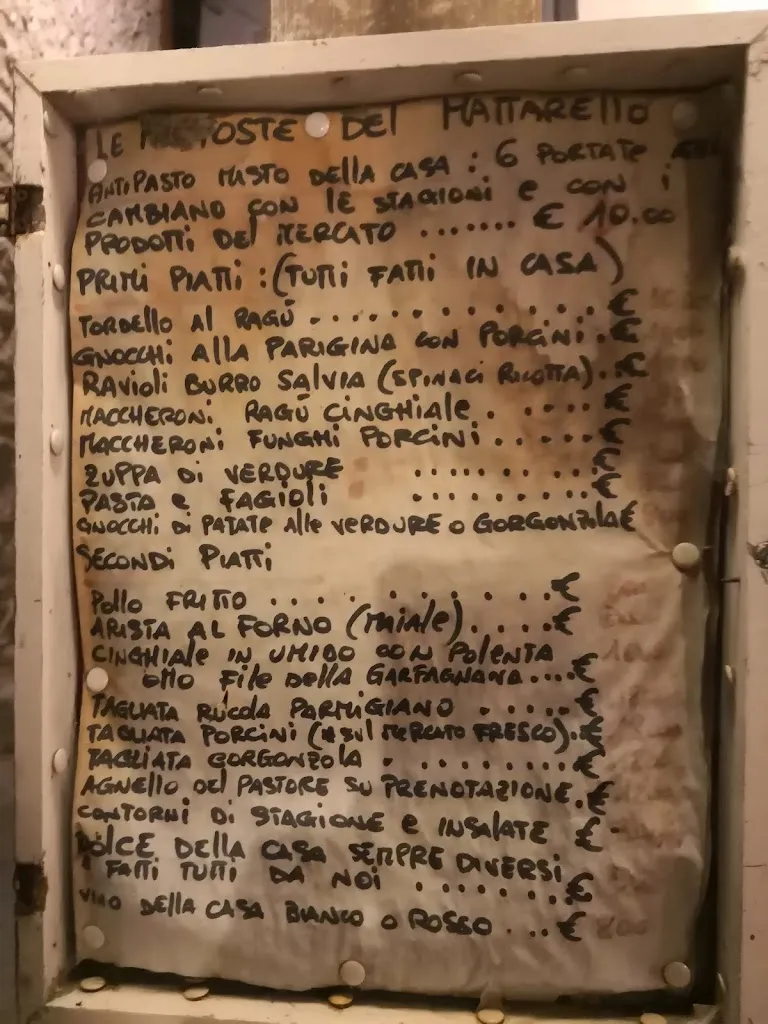 LE PROPOSTE DEL MATTARELLO
ANTIPASTO MISTO DELLA CASA : 6 PORTATE
CAMBIANO CON LE STAGIONI e CON i
PRODOTTI DEL MERCATO ....... € 10.00
PRIMI PIATTI : (TUTTI FATTI IN CASA)
TORDELLO AL RAGÚ ............ €
GNOCCHI ALLA PARIGINA CON PORCINI . €
RAVIOLI BURRO SALVIA (SPINACI RICOTTA) . €
MACCHERONI RAGÚ CINGHIALE . .... €
MACCHERONI FUNGHI PORCINI ...... €
ZUPPA DI VERDURE ......... €
PASTA e FAGIOLI ......... €
GNOCCHI DI PATATE Alle VERDURE o GORGONZOLA €
SECONDI PIATTI
POLLO FRITTO ........... €
ARISTA AL FORNO (MAIALE) ..... €
CINGHIALE IN UMIDO CON POLENTA
OTTO FILE DELLA GARFAGNANA .... €
TAGLIATA RUCOLA PARMIGIANO . .... €
TAGLIATA PORCINI (MERCATO FRESCO) . €
TAGLIATA GORGONZOLA . ........ €
AGNELLO DEL PASTORE SU PRENOTAZIONE . €
CONTORNI DI STAGIONE e INSALATE €
DOLCE DELLA CASA SEMPRE DIVERSI
FATTI TUTTI DA NOI ........ €
VINO DELLA CASA BIANCO o ROSSO ... €